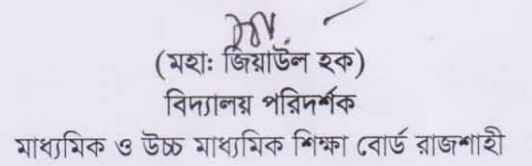 (মহাঃ জিয়াউল হক)
বিদ্যালয় পরিদর্শক
মাধ্যমিক ও উচ্চ মাধ্যমিক শিক্ষা বোর্ড রাজশাহী